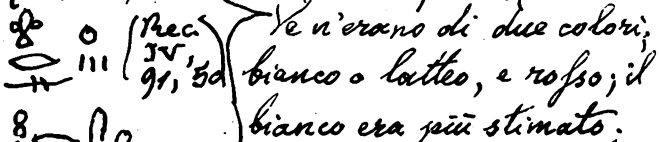 (Rec. Ve n'erano di due colori,
IV,
91, 50 bianco o latteo, e rosso; il
bianco era più stimato.